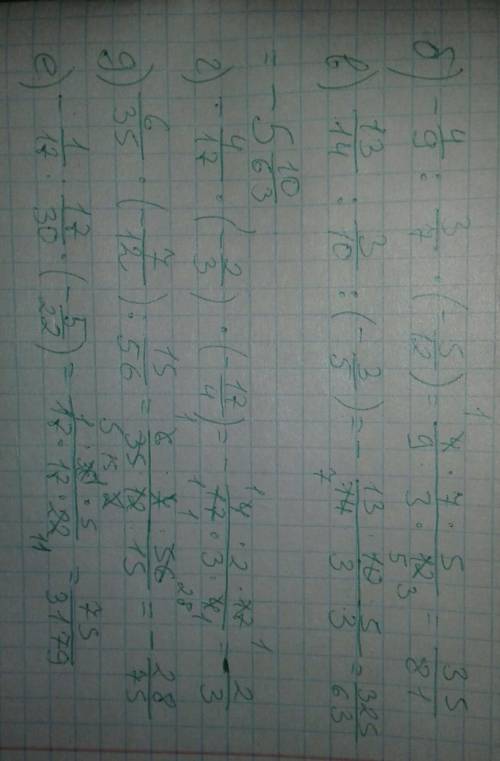 б) -4/9 : 3/7 · (-5/12) = 4·7·5/9·3·12 = 35/81
в) 13/14 : 3/10 : (-3/5) = - 13·10·5/14·3·3 = 325/63
= -5 10/63
г) -4/17 · (-2/3) · (-17/4) = - 4·2·17/17·3·4 = -2/3
д) 6/35 · (-7/12) : 15/56 = 6·7·56/35·12·15 = -28/75
е) -1/17 : 17/30 · (-5/22) = 1·30·5/17·17·22 = 75/3179